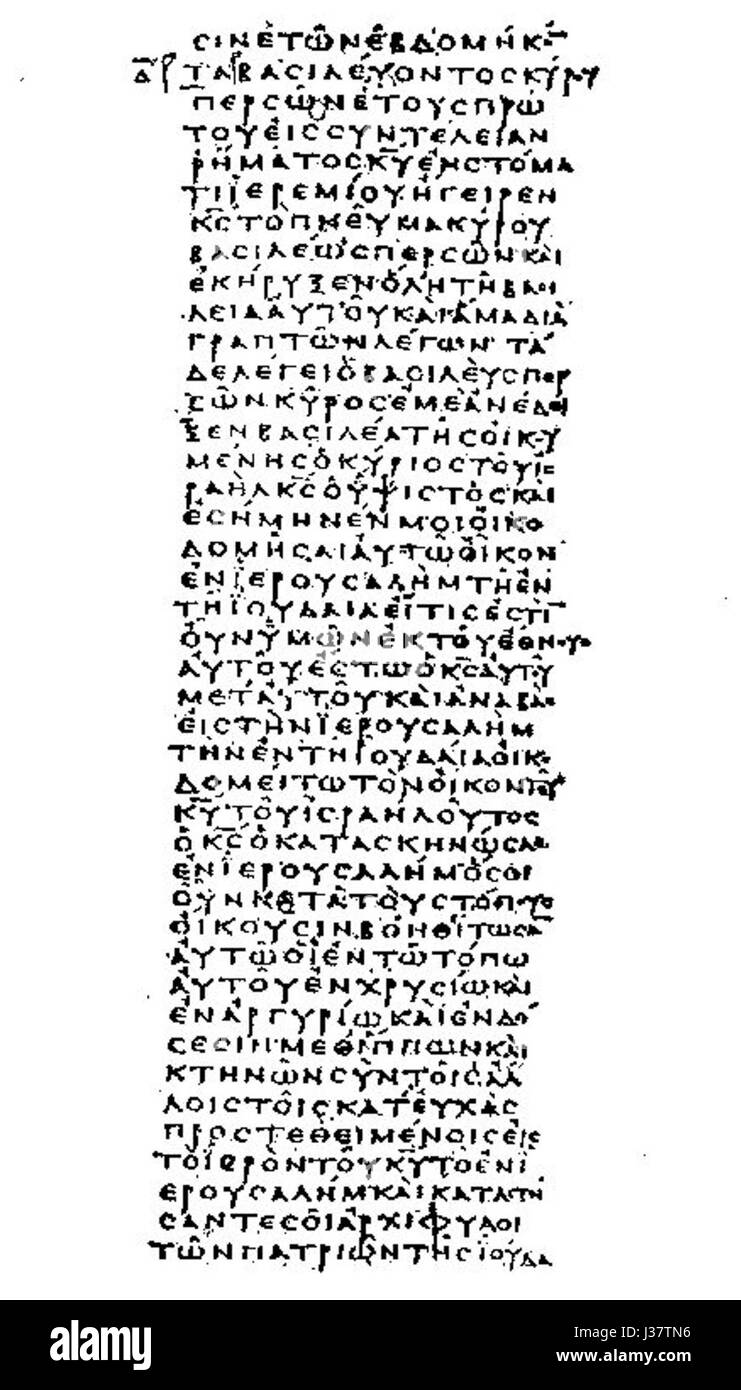 ϹΙΝ ΕΤΩΝ ΕΒΔΟΜΗΚΟ
ΤΑ ΒΑϹΙΛΕΥΟΝΤΟϹ ΚΥΡΥ
ΠΕΡϹΩΝ ΕΤΟΥϹ ΠΡΩ
ΤΟΥ ΕΙϹ ϹΥΝΤΕΛΕΙΑΝ
ΡΗΜΑΤΟϹ ΚΥ ΕΝ ϹΤΟΜΑ
ΤΙ ΙΕΡΕΜΙΟΥ ΗΓΕΙΡΕΝ
ΚϹ ΤΟ ΠΝΕΥΜΑ ΚΥΡΟΥ
ΒΑϹΙΛΕΩϹ ΠΕΡϹΩΝ ΚΑΙ
ΕΚΗΡΥΞΕΝ ΟΛΗ ΤΗ ΒΑϹΙ
ΛΕΙΑ ΑΥΤΟΥ ΚΑΙ ΑΜΑ ΔΙΑ
ΓΡΑΠΤΩΝ ΛΕΓΩΝ ΤΑ
ΔΕ ΛΕΓΕΙ Ο ΒΑϹΙΛΕΥϹ ΠΕΡ
ϹΩΝ ΚΥΡΟϹ ΕΜΕ ΑΝΕΔΕΙ
ΞΕΝ ΒΑϹΙΛΕΑ ΤΗϹ ΟΙΚΟΥ
ΜΕΝΗϹ Ο ΚΥΡΙΟϹ ΤΟΥ ΙϹ
ΡΑΗΛ ΚϹ Ο ΥΨΙϹΤΟϹ ΚΑΙ
ΕϹΗΜΗΝΕΝ ΜΟΙ ΟΙΚΟ
ΔΟΜΗϹΑΙ ΑΥΤΩ ΟΙΚΟΝ
ΕΝ ΙΕΡΟΥϹΑΛΗΜ ΤΗ ΕΝ
ΤΗ ΙΟΥΔΑΙΑ ΕΙ ΤΙϹ ΕϹΤΙ
ΟΥΝ ΥΜΩΝ ΕΚ ΤΟΥ ΕΘΝΟΥϹ
ΑΥΤΟΥ ΕϹΤΩ Ο ΚϹ ΑΥΤΟΥ
ΜΕΤ ΑΥΤΟΥ ΚΑΙ ΑΝΑΒΑϹ
ΕΙϹ ΤΗΝ ΙΕΡΟΥϹΑΛΗΜ
ΤΗΝ ΕΝ ΤΗ ΙΟΥΔΑΙΑ ΟΙΚΟ
ΔΟΜΕΙΤΩ ΤΟΝ ΟΙΚΟΝ ΤΟΥ
ΚΥ ΤΟΥ ΙϹΡΑΗΛ ΟΥΤΟϹ
Ο ΚϹ Ο ΚΑΤΑϹΚΗΝΩϹΑϹ
ΕΝ ΙΕΡΟΥϹΑΛΗΜ ΟϹΟΙ
ΟΥΝ ΚΑΤΑ ΤΟΥϹ ΤΟΠΟΥϹ
ΟΙΚΟΥϹΙΝ ΒΟΗΘΙΤΩϹΑ
ΑΥΤΩ ΟΙ ΕΝ ΤΩ ΤΟΠΩ
ΑΥΤΟΥ ΕΝ ΧΡΥϹΙΩ ΚΑΙ
ΕΝ ΑΡΓΥΡΙΩ ΚΑΙ ΕΝ ΔΟ
ϹΕϹΙΝ ΜΕΘ ΙΠΠΩΝ ΚΑΙ
ΚΤΗΝΩΝ ϹΥΝ ΤΟΙϹ ΑΛ
ΛΟΙϹ ΤΟΙϹ ΚΑΤ ΕΥΧΑϹ
ΠΡΟϹΤΕΘΕΙΜΕΝΟΙϹ ΕΙϹ
ΤΟ ΙΕΡΟΝ ΤΟΥ ΚΥ ΤΟ ΕΝ Ι
ΕΡΟΥϹΑΛΗΜ ΚΑΙ ΚΑΤΑϹΤΗ
ϹΑΝΤΕϹ ΟΙ ΑΡΧΙΦΥΛΟΙ
ΤΩΝ ΠΑΤΡΙΩΝ ΤΗϹ ΙΟΥΔΑ
alamy stock photo
J37TN6
www.alamy.com